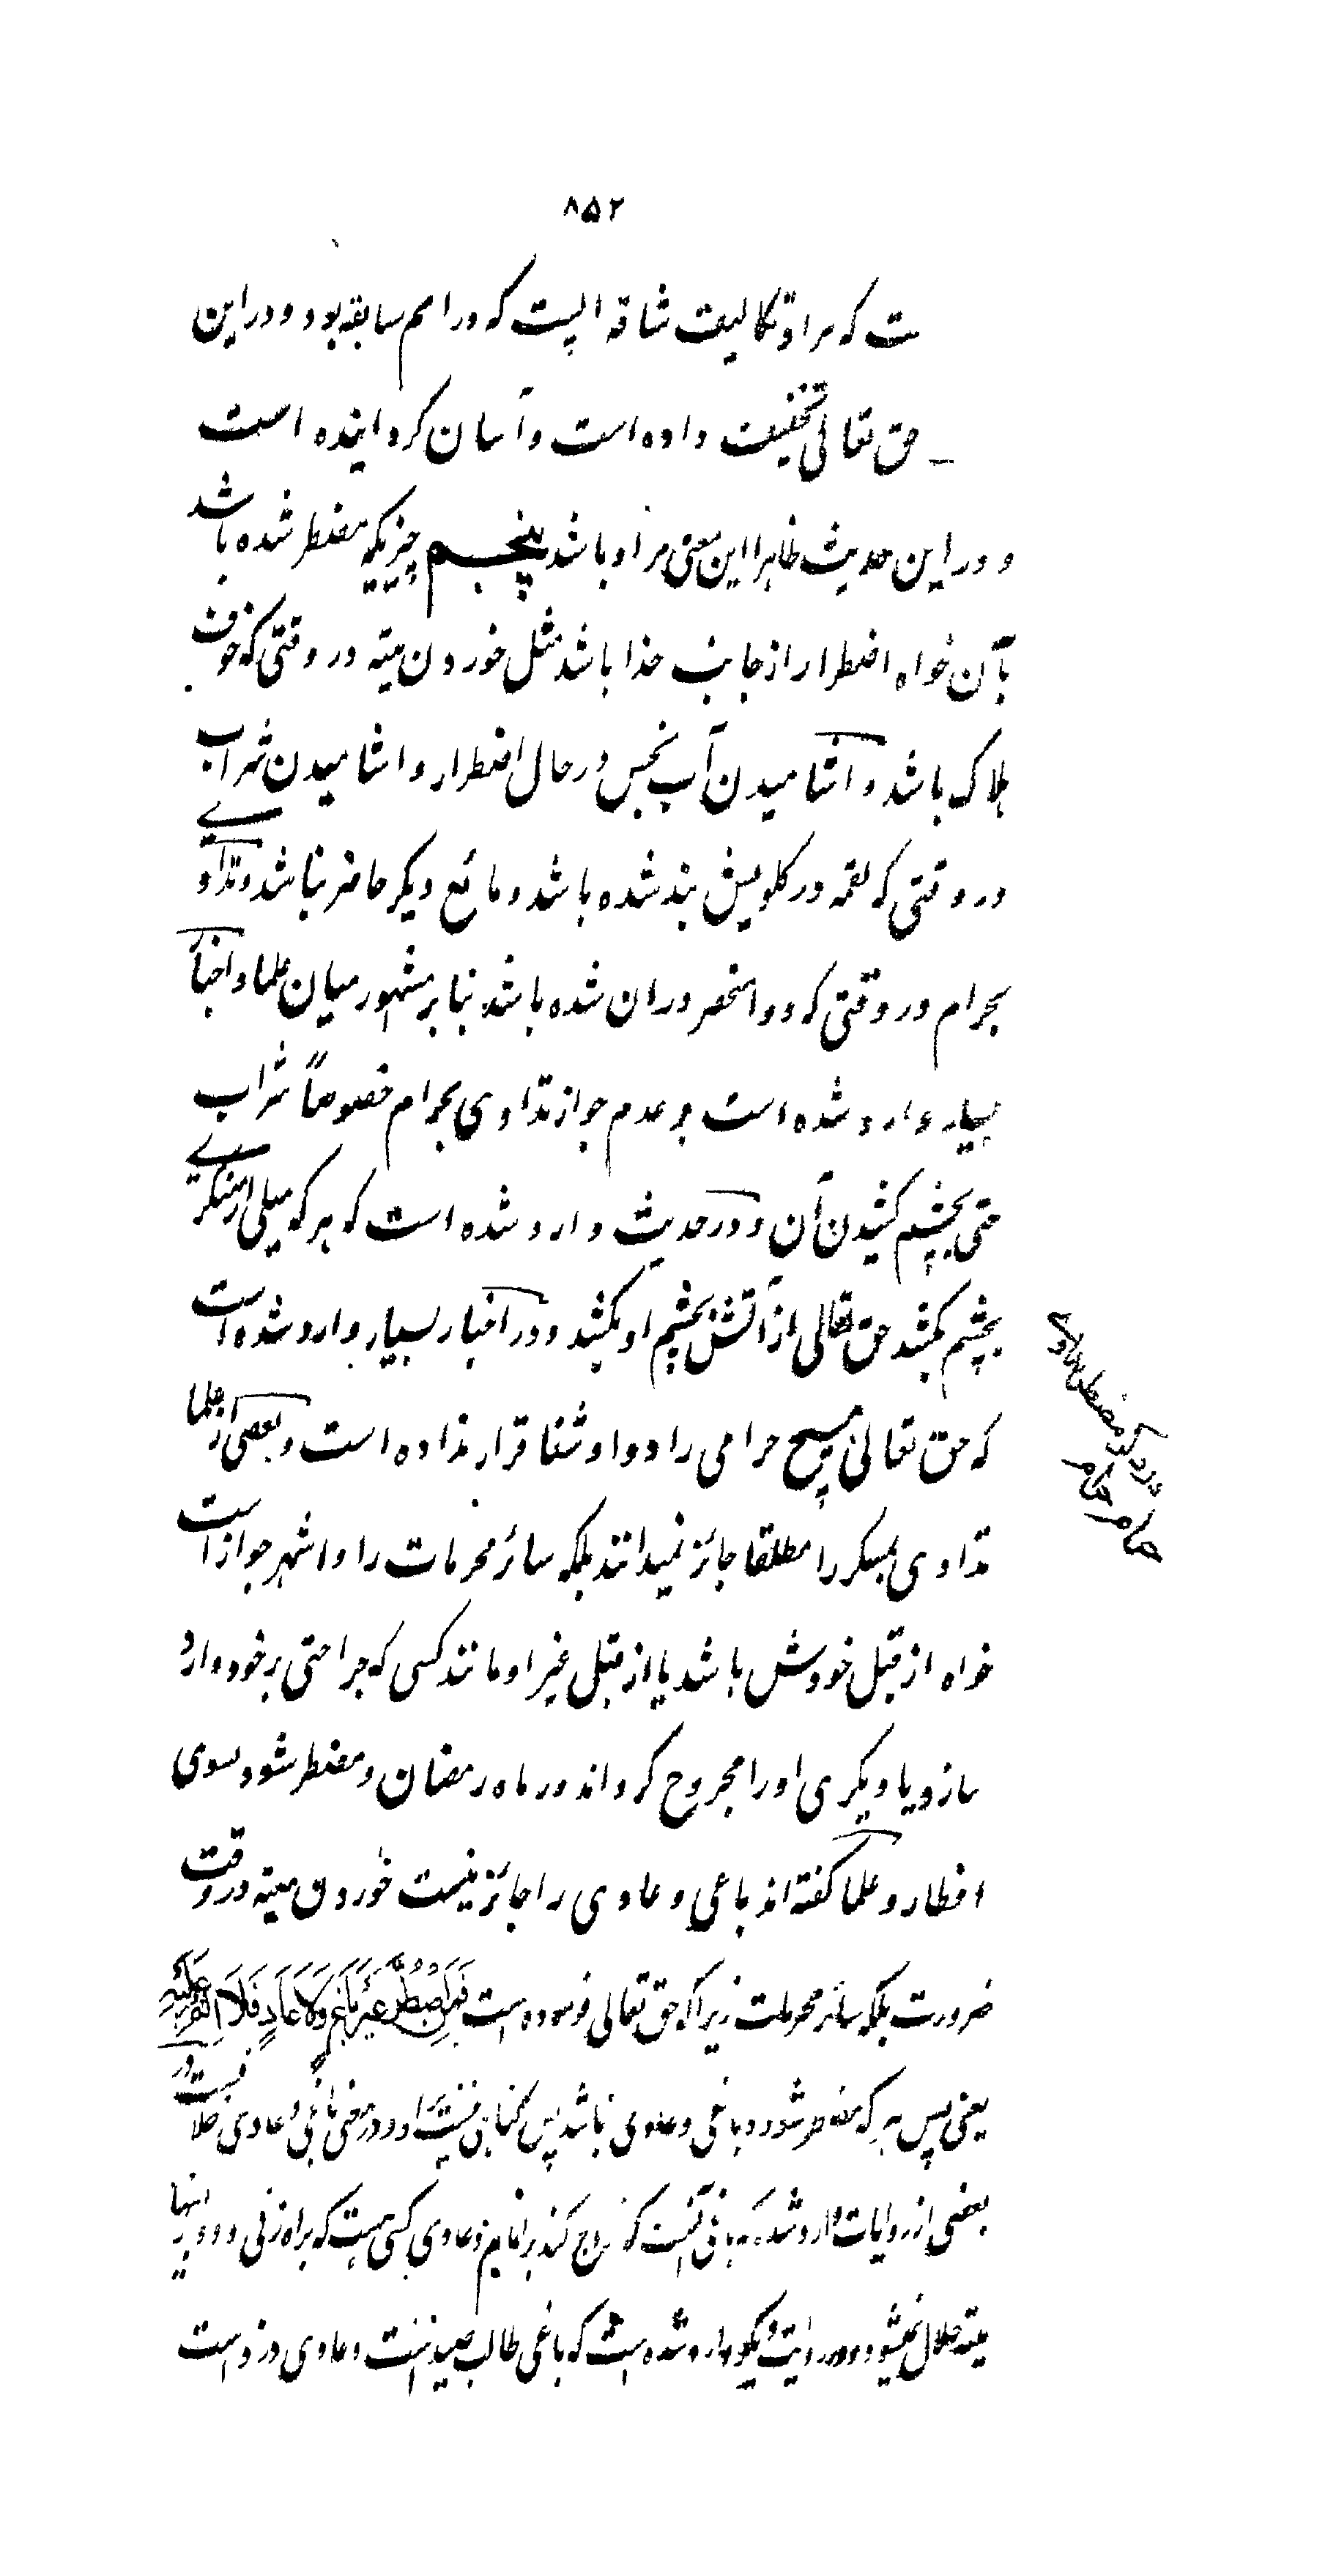 ۸۵۲
ست که مراد تکالیف شاقه ایست که در امم سابقه بود و در این
حق تعالی تخفیف داده است و آسان کردانیده است
و در این حدیث ظاهرا این معنی مراد باشد پنجم چیزیکه مضطر شده باشد
بآن خواه اضطرار از جانب خدا باشد مثل خوردن میته در وقتی که خوف
هلاک باشد و آشامیدن آب نجس در حال اضطرار و اشامیدن شراب
در وقتی که لقمه در کلویش بند شده باشد و مائع دیکر حاضر نباشد و تداوی
بحرام در وقتی که دوا منحصر در ان شده باشد بنا بر مشهور میان علما و اخبار
بسیار وارد شده است بر عدم جواز تداوی بحرام خصوصاً شراب
حتی بچشم کشیدن آن و در حدیث وارد شده است که هر که میلی از مسکری
بچشم بکشد حق تعالی از آتش بچشم او بکشد و در اخبار بسیار وارد شده است
که حق تعالی هیچ حرامی را دوا و شفا قرار نداده است و بعضی از علما
تداوی بمسکر را مطلقا جائز نمیدانند بلکه سائر محرمات را و اشهر جواز است
خواه از قبل خودش باشد یا از قبل غیر او مانند کسی که جراحتی بر خود وارد
سازد یا دیکری او را مجروح کرداند در ماه رمضان و مضطر شود بسوی
افطار و علما کفته اند باغی و عادی را جائز نیست خوردن میته در وقت
ضرورت بلکه سائر محرمات زیرا که حق تعالی فرموده است فَمَنِ اضْطُرَّ غَیْرَ بَاغٍ وَلَا عَادٍ فَلَا اِثْمَ عَلَیْهِ
یعنی پس هر که مضطر شود و باغی و عادی نباشد پس کناهی نیست او و در معنی باغی و عادی خلافست در
بعضی از روایات وارد شده که باغی آنست که خروج کند بر امام و عادی کسی است که براه زنی رود و بر اینها
میته حلال نمیشود و در روایت دیکر وارد شده است که باغی طالب صید است و عادی دزد است
حرام